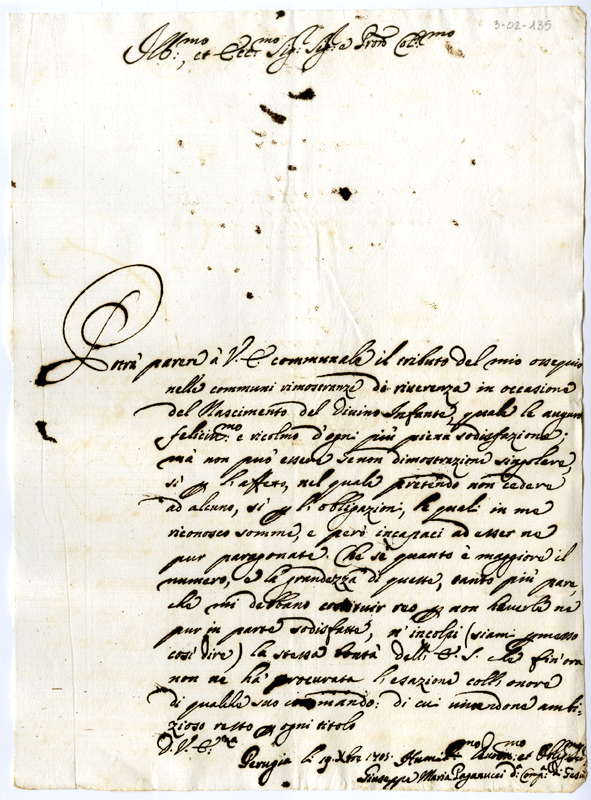 3-02-135
Ill:mo, et Ecc:mo Sig:r Sig:r e Pron Col:mo
Potrà parere à V. E. communale il tributo del mio ossequio
nelle communi rimostranze di riverenza in occasione
del Nascimento del Divino Infante, quale le auguro
felicis:mo e ricolmo d'ogni più piena sodisfazione;
mà non può essere se non dimostrazione singolare,
sì p l'affetto, nel quale pretendo non cedere
ad alcuno, sì p l'obligazioni, le quali in me
riconosco somme, e però incapaci ad esser ne
pur paragonate. Che se quanto è maggiore il
numero, e la grandezza di queste, tanto più pare,
che mi debbano costituir reo p non haverle ne
pur in parte sodisfatte, n'incolpi (siami pmesso
così dire) la stessa bontà dell' E. S. che fin'ora
non ne hà procurata l'esazione coll'onore
di qualche suo commando: di cui vivendone ambi-
zioso resto p ogni titolo
D. V. E.
Perugia li 19 Xbre 1705. Humil:mo Devot:mo et Oblig:mo
Giuseppe Maria Paganucci d. Comp:a di Giesù